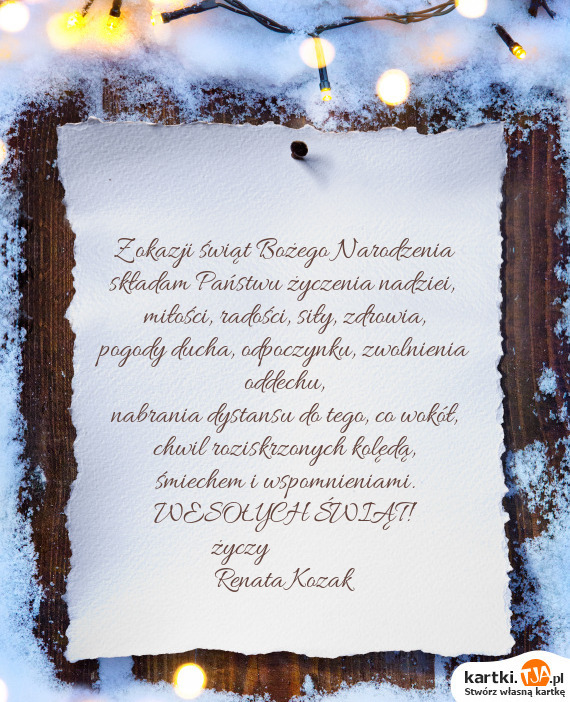 Z okazji świąt Bożego Narodzenia
składam Państwu życzenia nadziei,
miłości, radości, siły, zdrowia,
pogody ducha, odpoczynku, zwolnienia
oddechu,
nabrania dystansu do tego, co wokół,
chwil roziskrzonych kolędą,
śmiechem i wspomnieniami.
WESOŁYCH ŚWIĄT!
życzy
Renata Kozak
kartki.TJA.pl
Stwórz własną kartkę